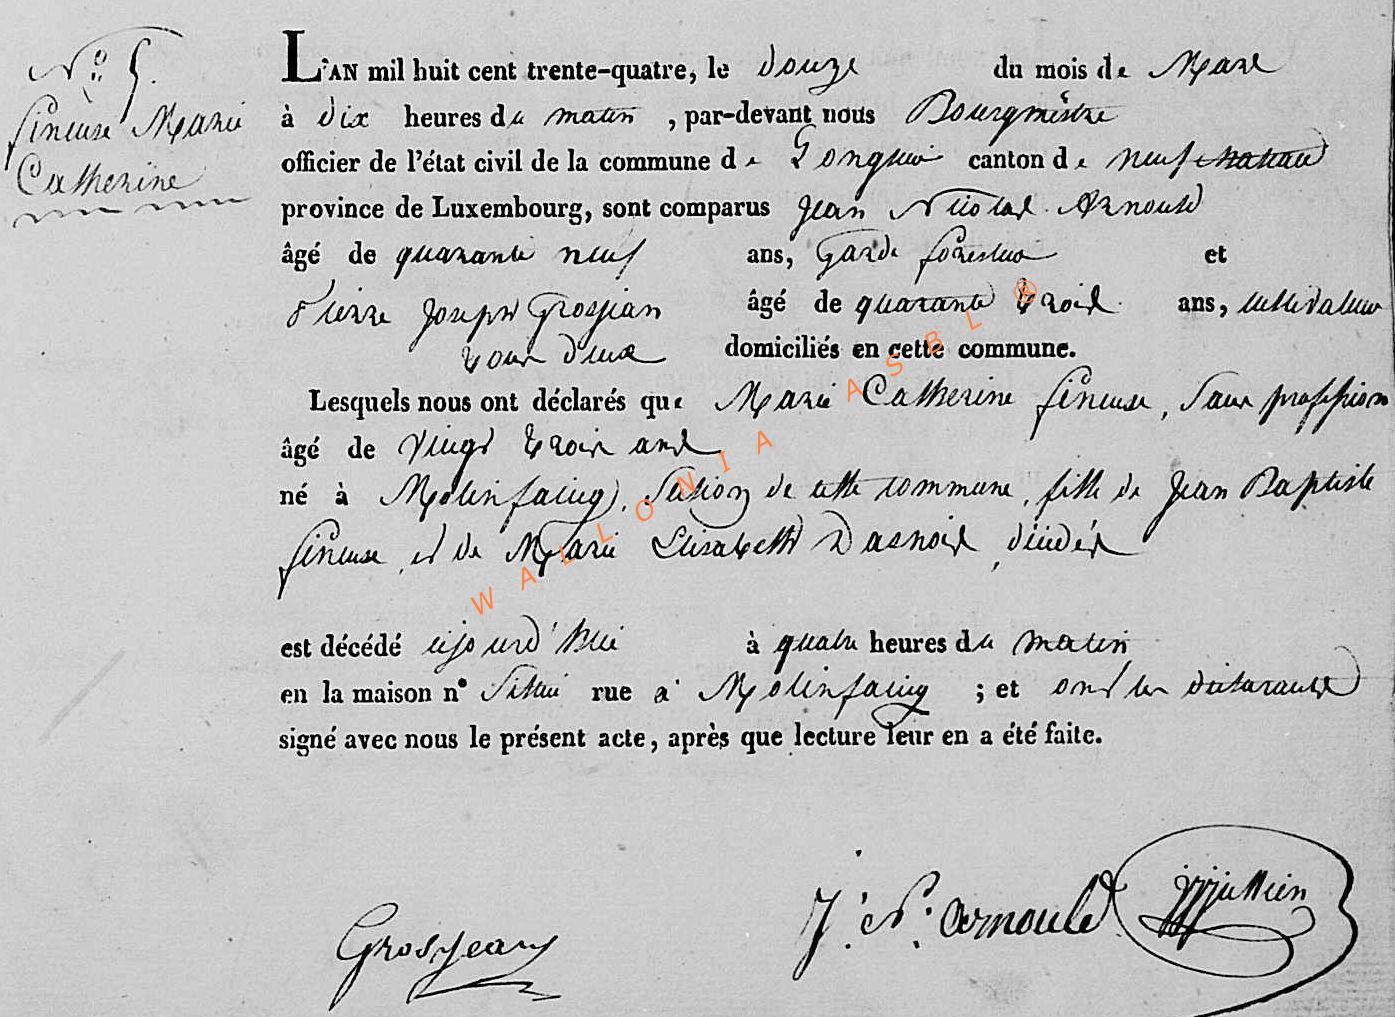 N.º 5.
Fineuse Marie
Catherine
L'AN mil huit cent trente-quatre, le douze du mois de Mars
à dix heures du matin, par-devant nous Bourgmestre
officier de l'état civil de la commune de Longlier canton de neufchateau
province de Luxembourg, sont comparus Jean Nicolas Arnould
âgé de quarante neuf ans, Garde forestier et
Pierre Joseph Grosjean âgé de quarante trois ans, cultivateur
tous deux domiciliés en cette commune.
Lesquels nous ont déclarés que Marie Catherine fineuse, sans profession
âgé de vingt trois ans
né à Molinfaing, section de cette commune, fille de Jean Baptiste
fineuse, et de Marie Elisabeth Dasnois, décédés
est décédé aujourd'hui à quatre heures du matin
en la maison nº située rue à Molinfaing ; et ont les déclarants
signé avec nous le présent acte, après que lecture leur en a été faite.
Grosjean
J. N. arnould
WALLONIA ASBL ®